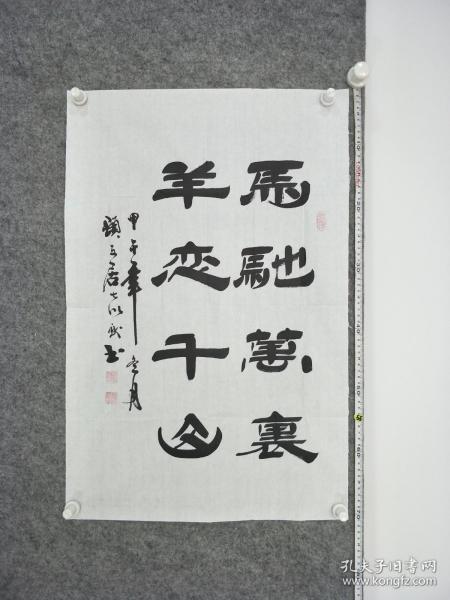 馬馳萬裏
羊恋千山
甲午年月
居士書
孔夫子旧书网
www.kongfz.com